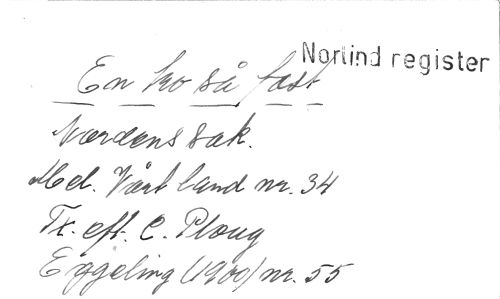 Norlind register
En tro så fast
Nordens sak.
Mel. Vårt land nr. 34
Tx. eft. C. Ploug
Eggeling (1900) nr. 55